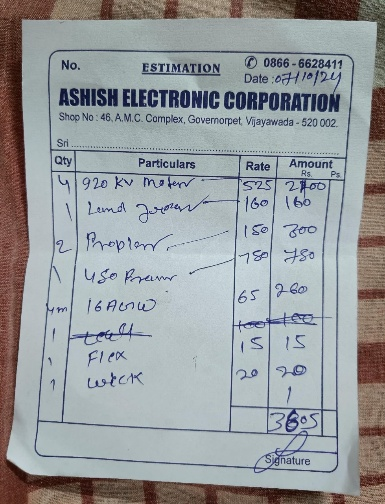 No. ESTIMATION ✆ 0866 - 6628411
Date : 07/10/24
ASHISH ELECTRONIC CORPORATION
Shop No : 46, A.M.C. Complex, Governorpet, Vijayawada - 520 002.
Sri
Qty Particulars Rate Amount
Rs. Ps.
4 920 KV Motor 525 2100
1 Land 160 160
2 150 300
1 450 750 750
4m 16 AWG 65 260
1 100 100
1 Flex 15 15
1 Wick 20 20
3605
Signature